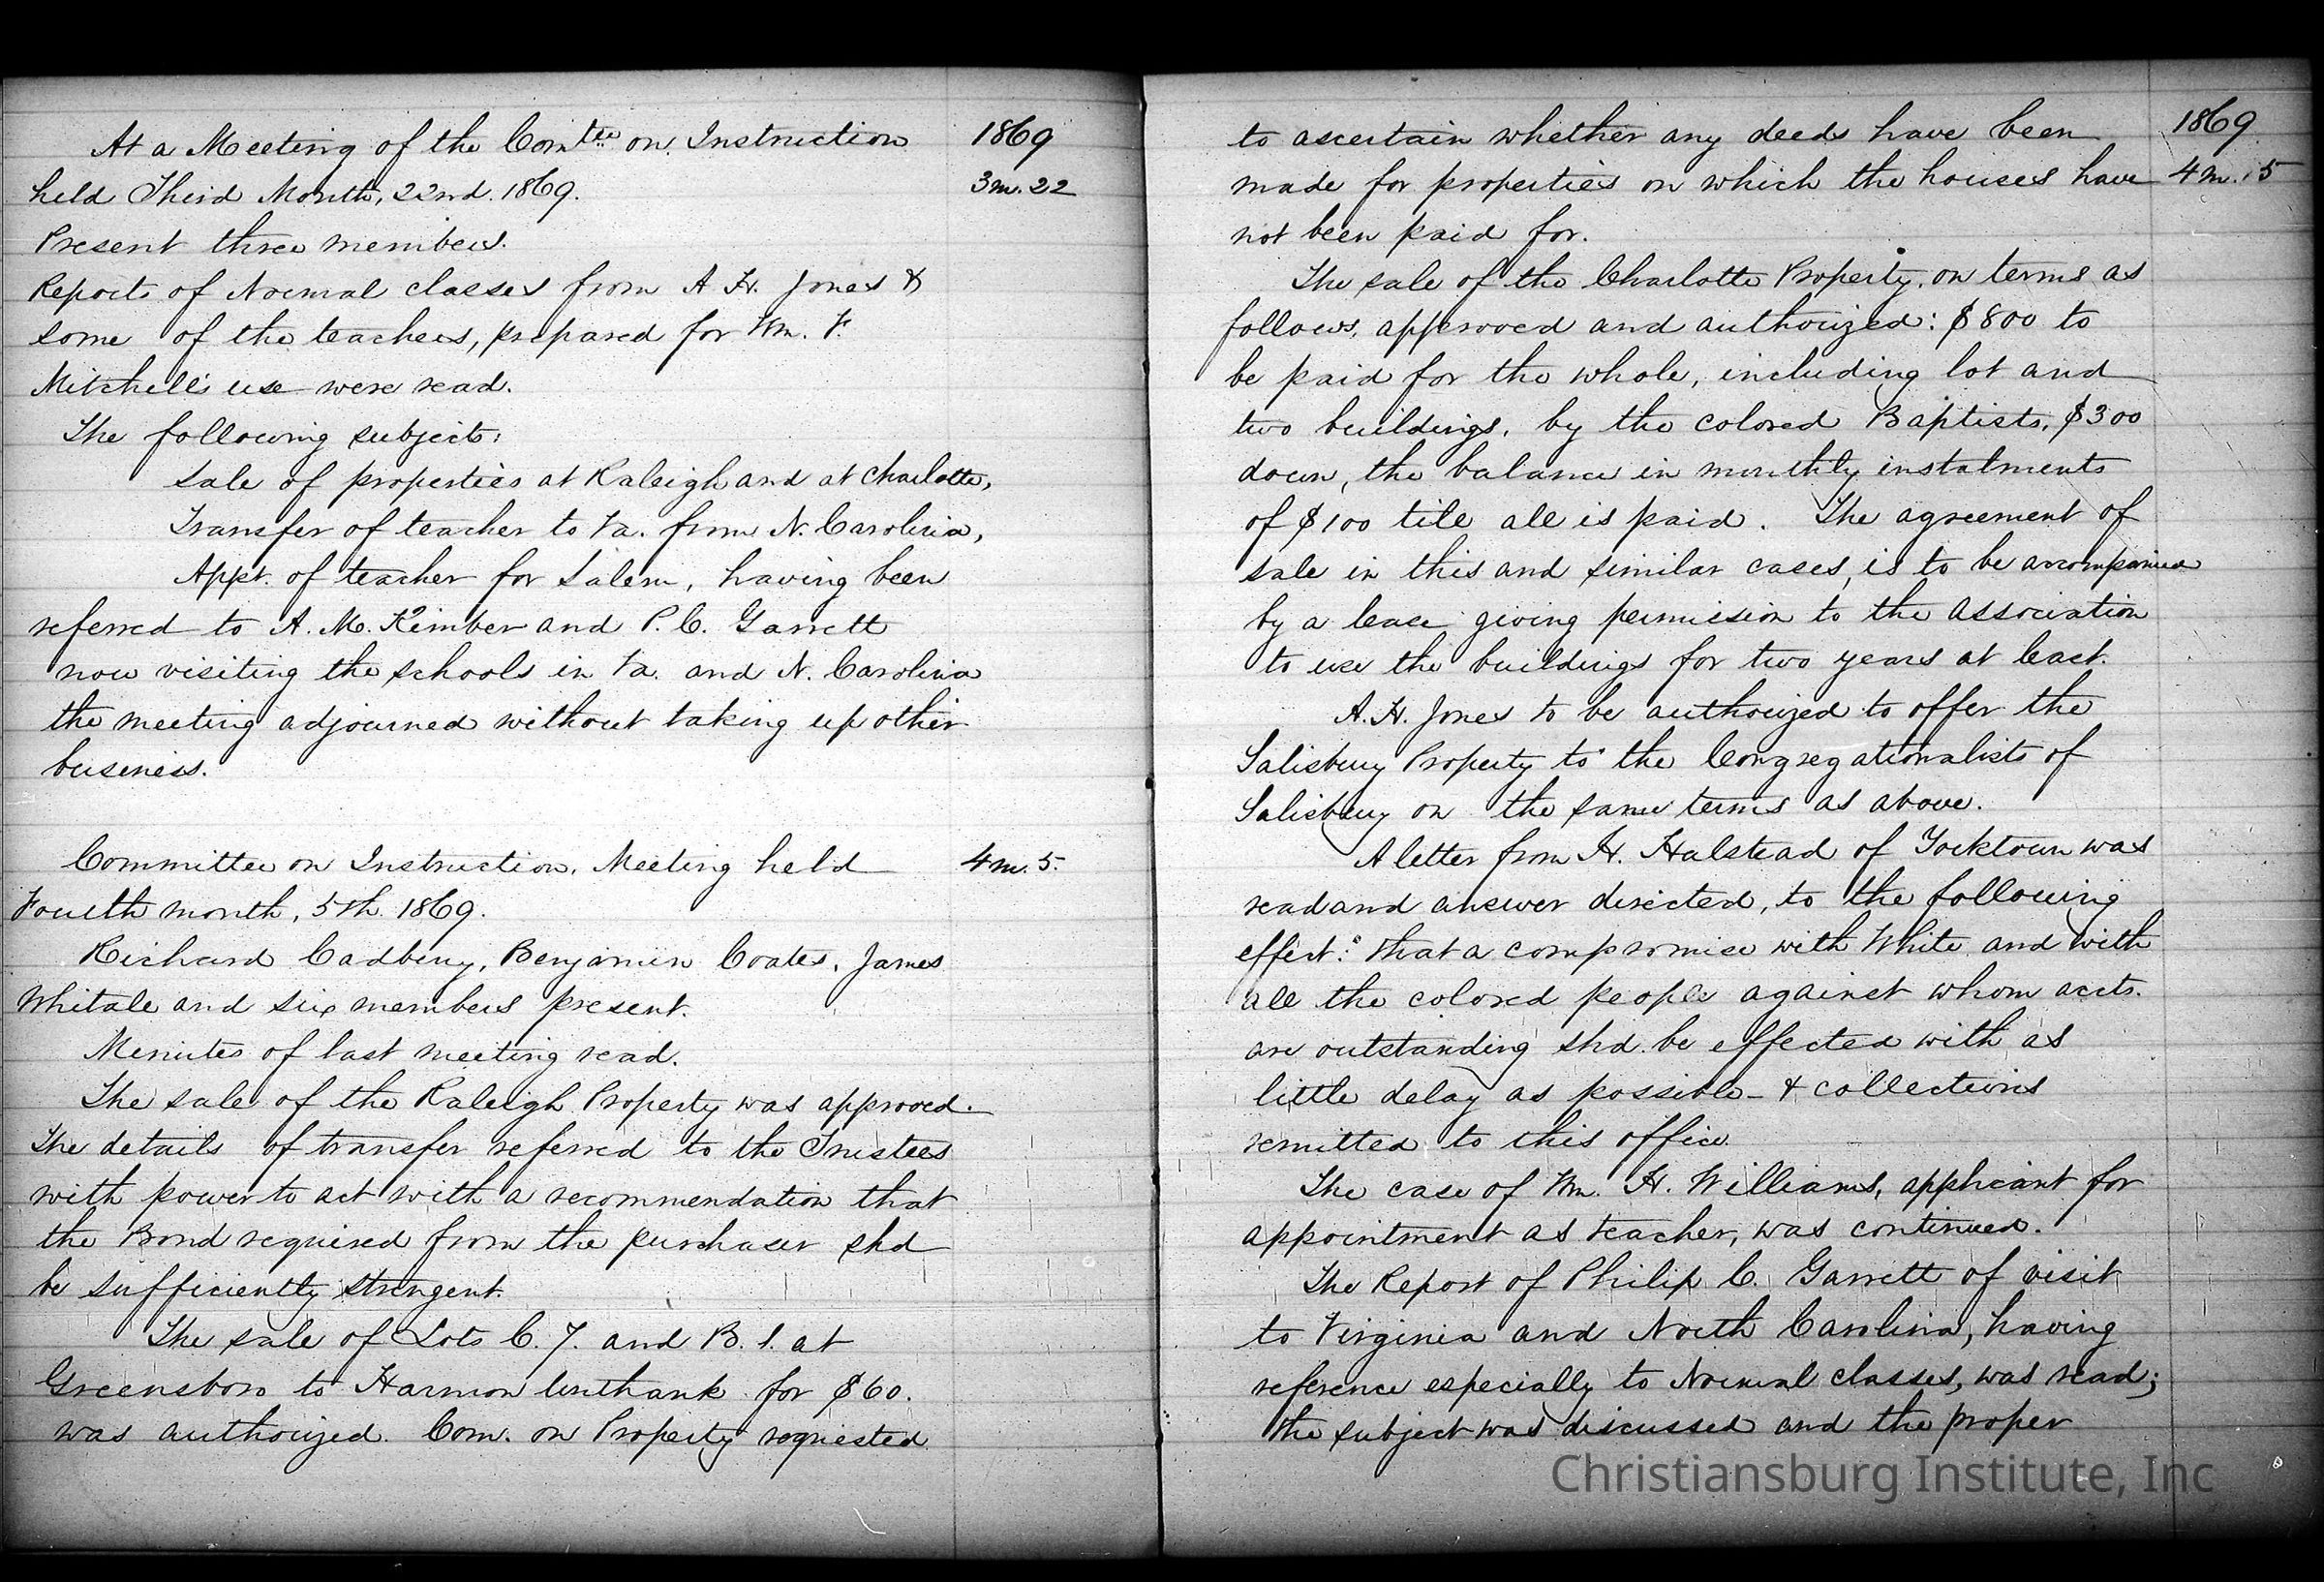 At a Meeting of the Comtee on Instruction
1869
held Third Month, 22nd. 1869.
3m. 22
Present three members.
Reports of Normal classes from A H. Jones &
some of the teachers, prepared for Wm. F.
Mitchell's use were read.
The following subjects:
Sale of properties at Raleigh and at Charlotte,
Transfer of teacher to Va. from N. Carolina,
Appt. of teacher for Salem, having been
referred to A. M. Kimber and P. C. Garrett
now visiting the schools in Va. and N. Carolina
the meeting adjourned without taking up other
business.
Committee on Instruction. Meeting held
4m. 5.
Fourth month, 5th 1869.
Richard Cadbury, Benjamin Coates, James
Whitall and six members present.
Minutes of last meeting read.
The sale of the Raleigh Property was approved.
The details of transfer referred to the Trustees
with power to act with a recommendation that
the Bond required from the purchaser shd
be sufficiently stringent.
The sale of Lots C. 7. and B. 1. at
Greensboro to Harmon Unthank for $60.
was authorized. Com. on Property requested
to ascertain whether any deeds have been
1869
made for properties on which the houses have
4m. 5
not been paid for.
The sale of the Charlotte Property, on terms as
follows, approved and authorized: $800 to
be paid for the whole, including lot and
two buildings, by the colored Baptists, $300
down, the balance in monthly instalments
of $100 till all is paid. The agreement of
sale in this and similar cases, is to be accompanied
by a lease giving permission to the Association
to use the buildings for two years at least.
A. H. Jones to be authorized to offer the
Salisbury Property to the Congregationalists of
Salisbury on the same terms as above.
A letter from H. Halstead of Yorktown was
read and answer directed, to the following
effect: that a compromise with White and with
all the colored people against whom accts.
are outstanding shd. be effected with as
little delay as possible - & collections
remitted to this office.
The case of Wm. H. Williams, applicant for
appointment as teacher, was continued.
The Report of Philip C. Garrett of visit
to Virginia and North Carolina, having
reference especially to Normal classes, was read;
the subject was discussed and the proper
Christiansburg Institute, Inc